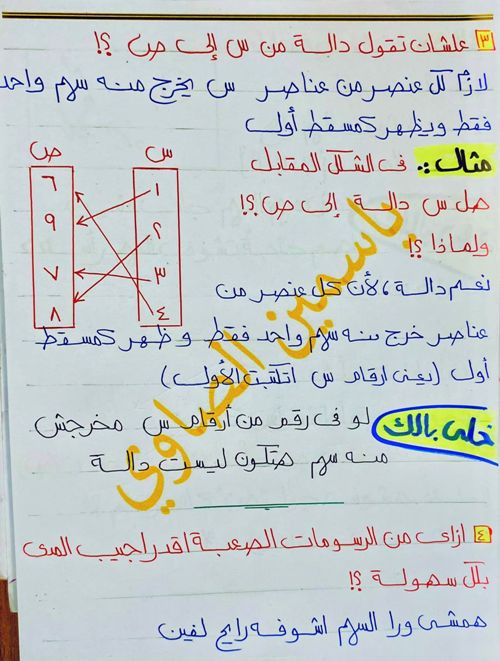 ٣ علشان تقول دالة من س إلى ص ؟!
لازم كل عنصر من عناصر س يخرج منه سهم واحد
فقط ويظهر كمسقط أول
مثال :. في الشكل المقابل
هل س دالة إلى ص ؟!
ولماذا ؟!
ص س
٦ ١
٩ ٢
٧ ٣
٨ ٤
نعم دالة ، لأن كل عنصر من
عناصر خرج منه سهم واحد فقط وظهر كمسقط
أول (يعني ارقام س اتكتبت الأول)
خلى بالك لو في رقم من أرقام س مخرجش
منه سهم هتكون ليست دالة
ياسمين الصاوي
٤ ازاى من الرسومات الصعبة اقدر اجيب المدى
بكل سهولة ؟!
همشى ورا السهم اشوفه رايح لفين